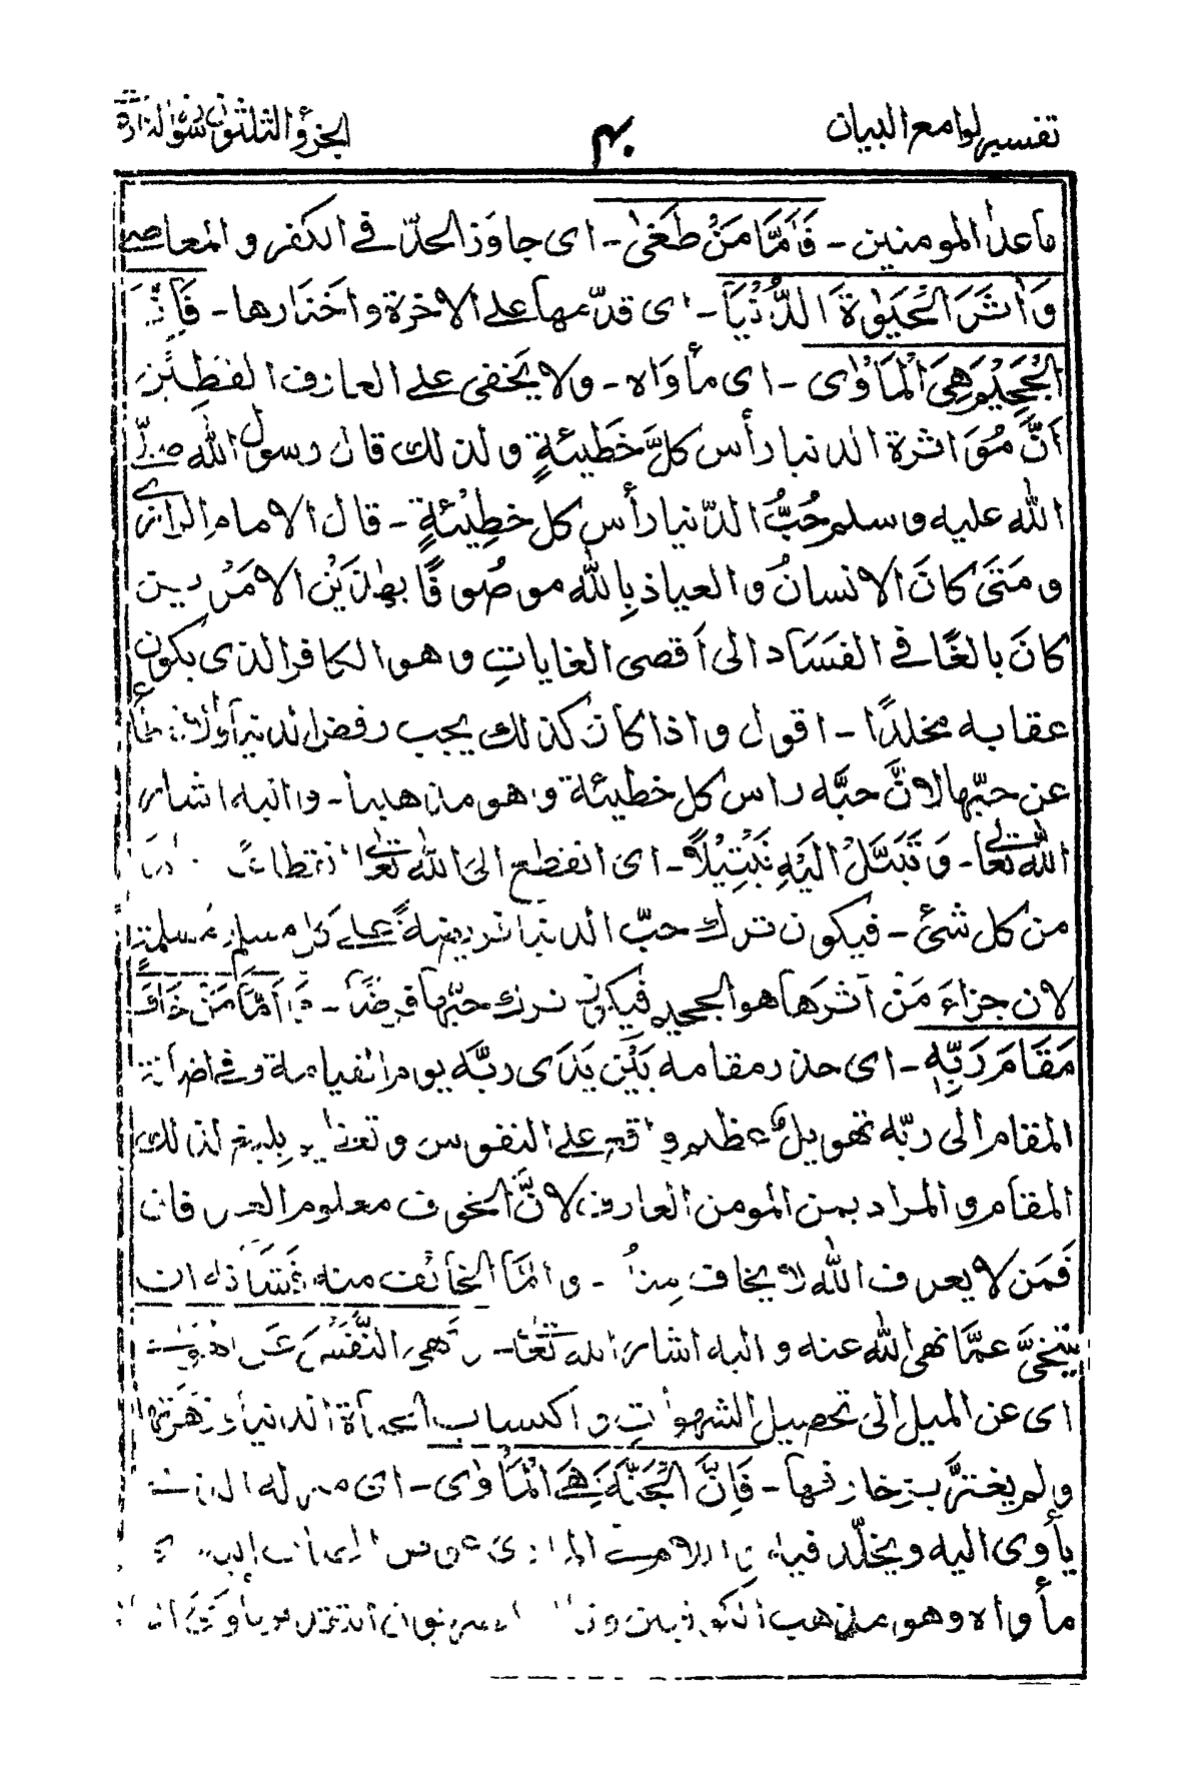 تفسير لوامع البيان
٤٠
الجزؤ الثلثون سورة النازعات
ما عدا المومنين - فَاَمَّا مَنْ طَغٰى - اى جاوَز الحدّ فى الكفر و المعاصى
وَاٰثَرَ الْحَيٰوةَ الدُّنْيَا - اى قدّمها على الاخرة واختارها - فَاِنَّ
الْجَحِيْمَ هِىَ الْمَاْوٰى - اى مأواه - ولا يخفى على العارف الفطِن
اَنَّ مُوَاثرة الدنيا رأس كلّ خَطيئةٍ ولذلك قال رسول الله صلّى
الله عليه وسلم حُبُّ الدّنيا رأس كل خطِيْئةٍ - قال الامام الرازى
و مَتىٰ كانَ الانسانُ والعياذ بِالله موصُوفًا بهٰذَيْن الامَرْيين
كانَ بالغًا فى الفَسَاد الى اَقصى الغاياتِ وهو الكافر الذى يكون
عقابه مخلدًا - اقول واذا كان كذلك يجب رفض الدنيا اولا
عن حبّها لانَّ حبَّه راس كل خطيئة وهو مذهبنا - واليه اشار
الله تعالى - وَتَبَتَّلْ اِلَيْهِ تَبْتِيْلًا - اى انقطع الى الله تعالى انقطاعًا
من كل شئ - فيكون ترك حبّ الدنيا فريضةً على كل مسلم ومُسلمةٍ
لان جزاءَ مَنْ آثرَها هو الجحيم فيكون ترك حبّها فرضًا - وَاَمَّا مَنْ خَافَ
مَقَامَ رَبِّهٖ - اى حذر مقامه بَيْن يَدَى ربّه يوم القيامة وفى اضافة
المقام الى ربّه تهويلٌ عظيم واقع على النفوس و لذلك
المقام والمراد بمن المومن العارف لانَّ الخوف معلوم العرفان
فَمَن لا يعرف الله لا يخاف مِنهُ - و امّا الخائف منه فشَانه ان
يتنحّىَ عمّا نهى الله عنه و اليه اشار الله تعالى - وَنَهَى النَّفْسَ عَنِ الْهَوٰى
اى عن الميل الى تحصيل الشهواتِ و اكتساب الدنيا و زهرتها
ولم يغترَّ بزخارفها - فَاِنَّ الْجَنَّةَ هِىَ الْمَاْوٰى - اى منزله الذى
يأوى اليه ويخلّد فيه
مأواه وهو مذهب الكوفيين و